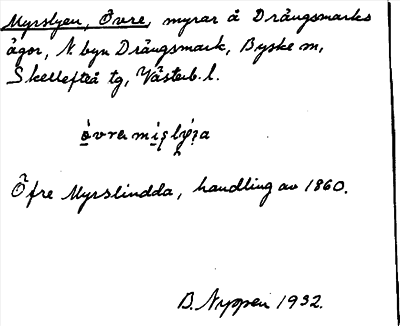 Myrslyen, Övre, myrar å Drängsmarks
ägor, N. byn Drängsmark, Byske sn,
Skellefteå tg, Västerb. l.
Öfre Myrslindda, handling av 1860.
B. Nyppen 1932.